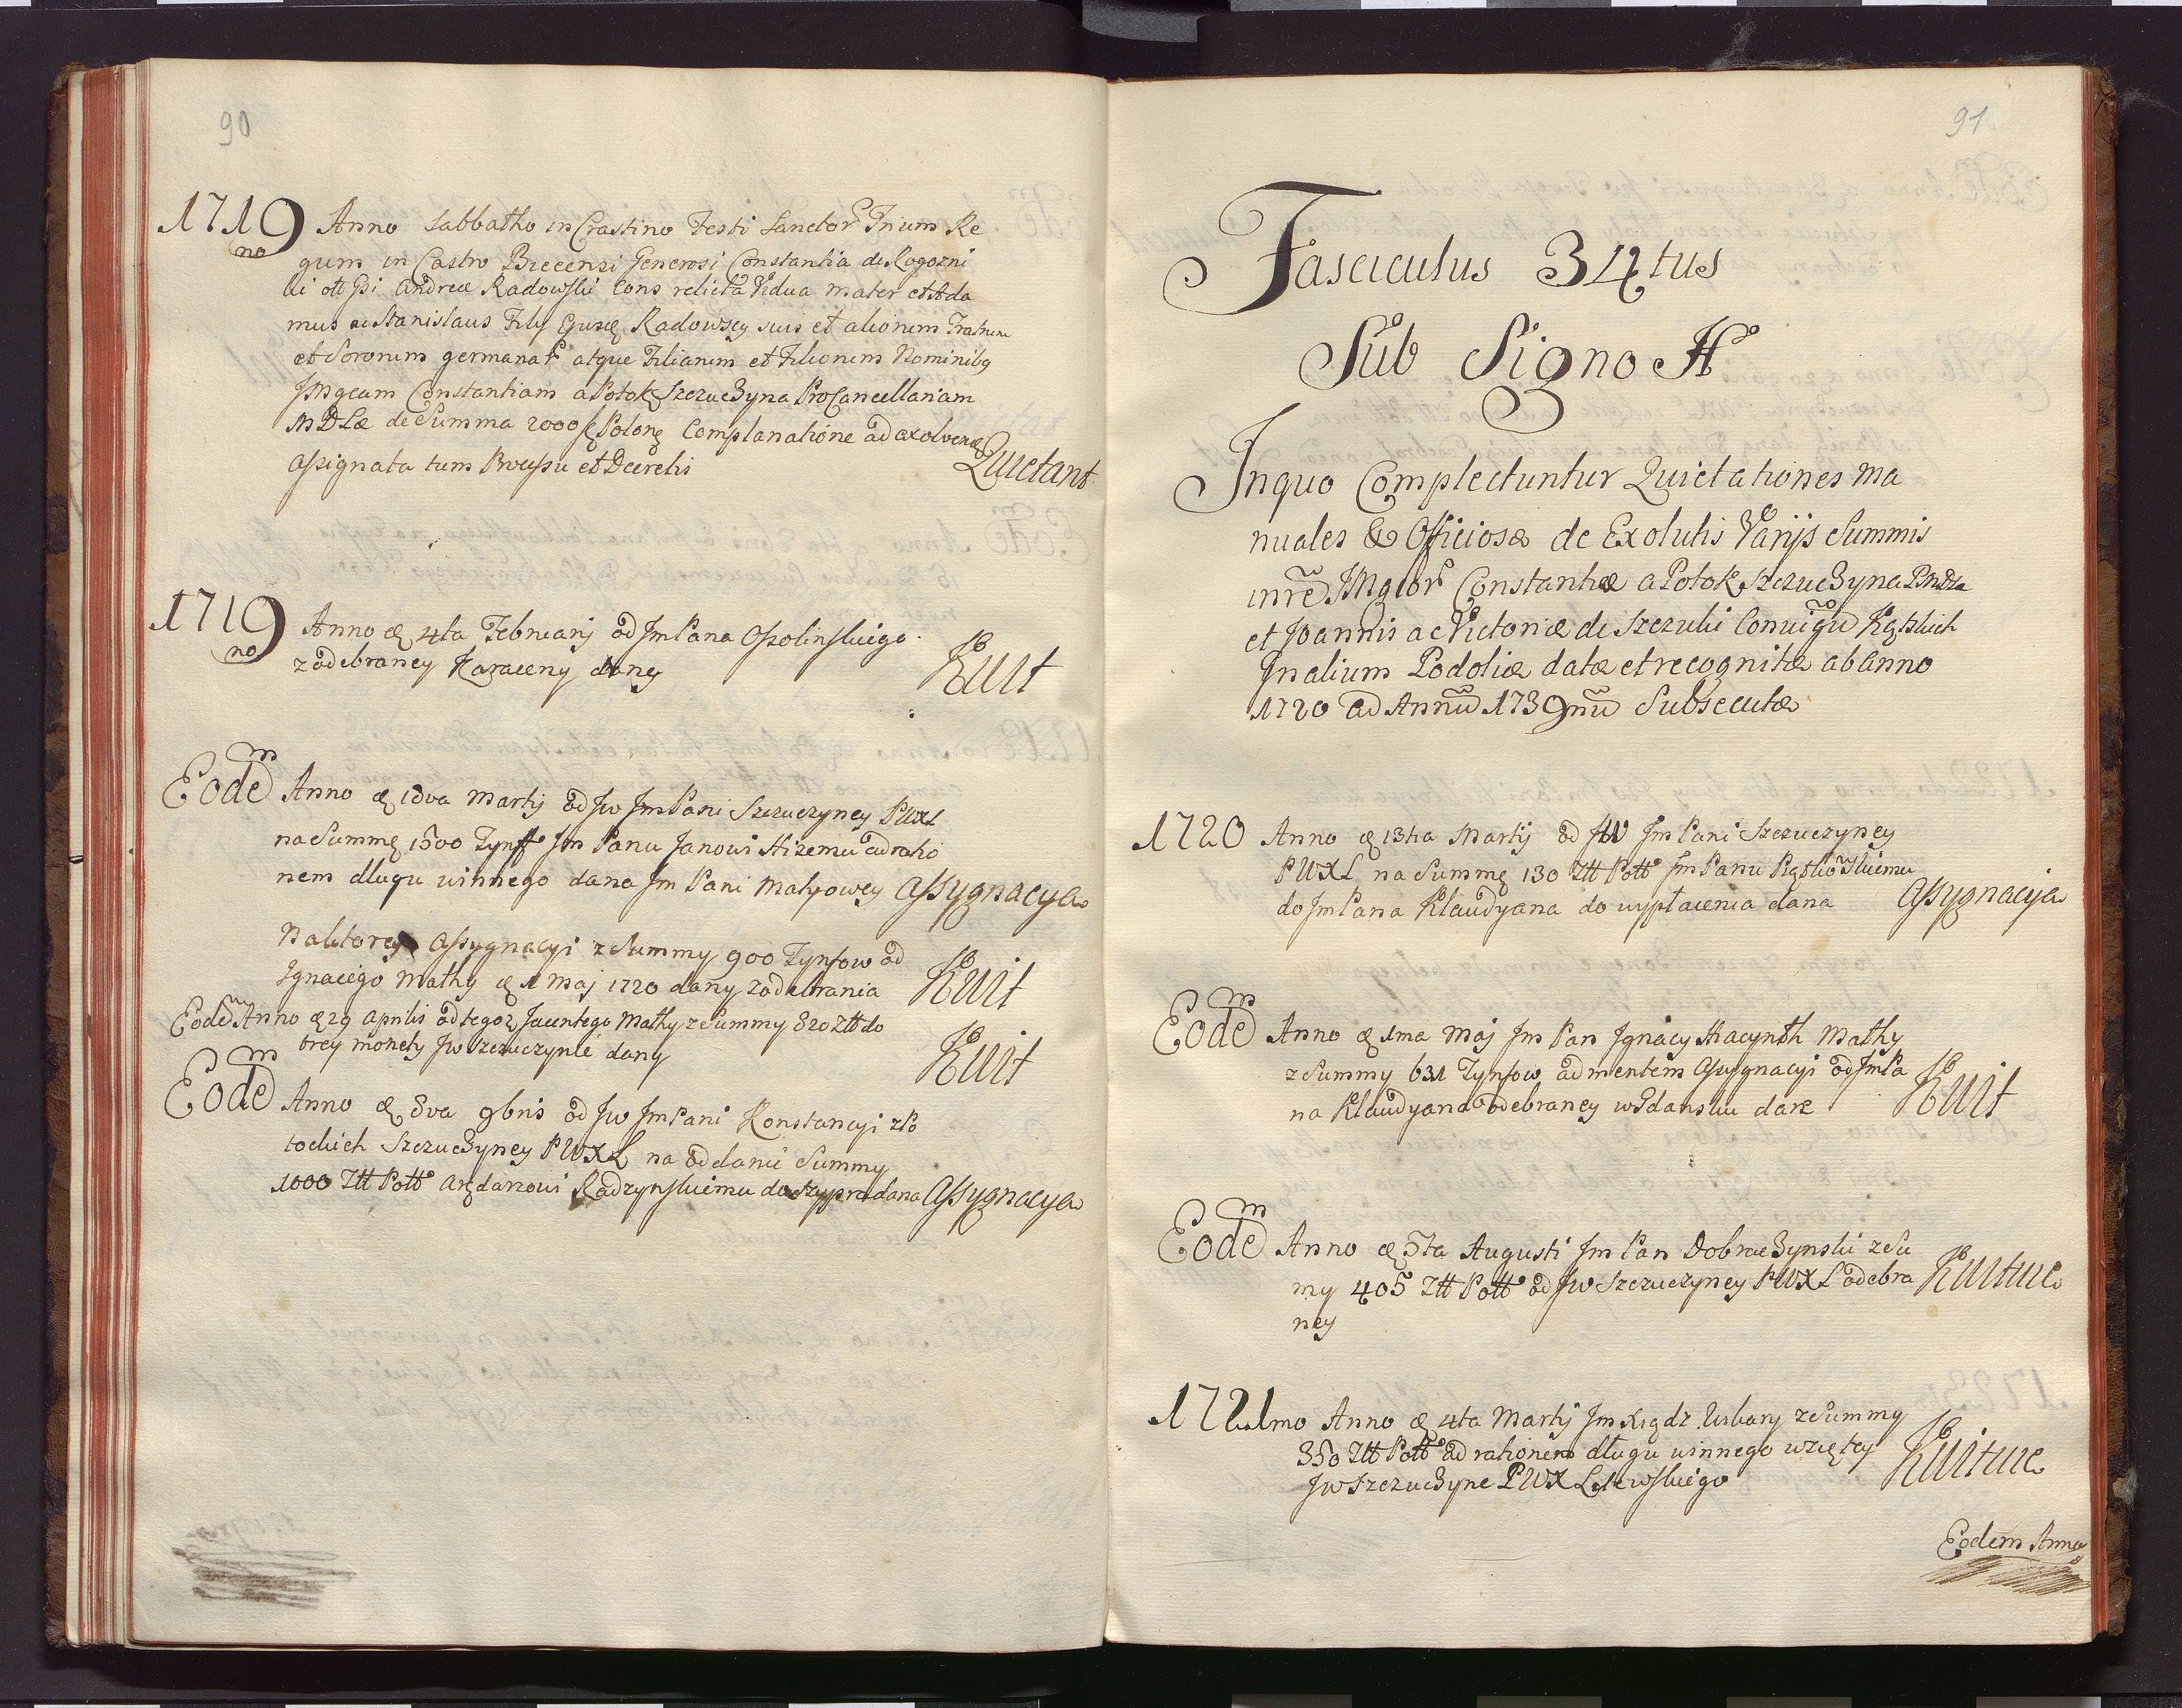 90
1719no Anno Sabbatho in Crastino Festi Sanctor Trium Re
gum in Castro Brecensi Generosi Constantia de Rogozni
Andreæ Radowski Cons relicta Vidua Mater et Ada
mus ac Stanislaus Filij Radowscy suis et aliorum Fratrum
et Sororum germanar atque Filiarum et Filiorum Nominibq
Constantiam a Potok Szczuczyna ProCancellariam
MDLæ de Summa 2000 Polonę Complanatione ad exolvend
assignata tum Processu et Decretis Quietant
1719no Anno æ 4ta Februarij od Jm Pana Ossolinskiego
z odebraney Karaceny dany Kwit
Eodem Anno æ 18va Martij od Jw Jm Pani Szczuczyney PWXL
na Summę 1500 Tynff Jm Panu Janowi Hizemu ad ratio
nem długu winnego dana Jm Pani Matysowey Assygnacya
Na ktorey Assygnacyi z Summy 900 Tynfow od
Ignacego Mathy æ 1 Maj 1720 dany z odebrania Kwit
Eodem Anno æ 29 Aprilis od tegoz Jacentego Mathy z Summy 820 Ztt do
brey monety Jw Szczuczynie dany Kwit
Eodem Anno æ 8va 9bris od Jw Jm Pani Konstancyi z Po
tockich Szczuczyney PWXL na oddanie Summy
1000 Ztt Pott Arędarzowi Radzynskiemu do szypra dana Assygnacya
91
Fasciculus 34tus
Sub Signo H
In quo Complectuntur Quietationes Ma
nuales & Officiosæ de Exolutis Varijs Summis
in rẽ JMgior Constantiæ a Potok Szczuczyna PMDLæ
et Joannis ac Victoriæ de Szczuki Coniugũ Kątskich
Gnalium Podoliæ datæ et recognitæ ab Anno
1720 ad Annũ 1739nũ Subsecutæ
1720 Anno æ 13tia Martij od JW Jm Pani Szczuczyney
PWXL na Summę 130 Ztt Pott Jm Panu
do Jm Pana Klaudyana do wypłacenia dana Assygnacyja
Eodem Anno æ 1ma Maj Jm Pan Ignacy Hacynth Mathy
z Summy 631 Tynfow ad mentem Assygnacyi od Jm Pa
na Klaudyana odebraney w Gdansku daie Kwit
Eodem Anno æ 5ta Augusti Jm Pan Dobraczynski z Su
my 405 Ztt Pott od Jw Szczuczyney PWXL odebra Kwituie
ney
1721mo Anno æ 4ta Martij Jm Xiądz Urbary z Summy
350 Ztt Pott ad rationem długu winnego wziętey
Jw Szczuczyne PWX Litewskiego Kwituie
Eodem Anno